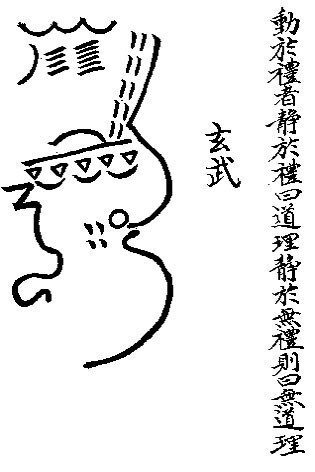 動於禮者靜於禮曰道理靜於無禮則曰無道理
玄武